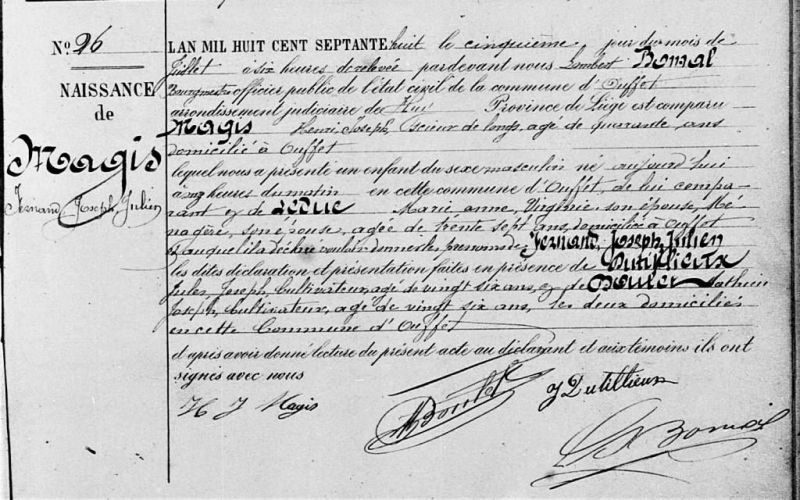 No 26
NAISSANCE
de
Magis
Fernand, Joseph, Julien
L'AN MIL HUIT CENT SEPTANTE huit le cinquième jour du mois de
Juillet à six heures de relevée pardevant nous Lambert Bomal
Bourgmestre officier public de l'état civil de la commune d'Ouffet
arrondissement judiciaire de Huy Province de Liège est comparu
Magis Henri Joseph, Scieur de longs, agé de quarante ans
domicilié à Ouffet
lequel nous a présenté un enfant du sexe masculin né aujourd'hui
à heures du matin en cette commune d'Ouffet, de lui compa-
rant & de Leduc Marie anne, Virginie, son épouse, Mé-
nagère, son épouse, agée de trente sept ans, domiciliée à Ouffet
& auquel il a déclaré vouloir donner les prénoms de Fernand, Joseph, Julien
les dites déclaration et présentation faites en présence de Dutillieux
Jules, Joseph, Cultivateur, agé de vingt six ans, & de Boulet Mathieu
Joseph, Cultivateur, agé de vingt six ans, les deux domiciliés
en cette Commune d'Ouffet
et après avoir donné lecture du présent acte au déclarant et aux témoins ils ont
signés avec nous
H J Magis
M Boulet
J Dutillieux
Bomal